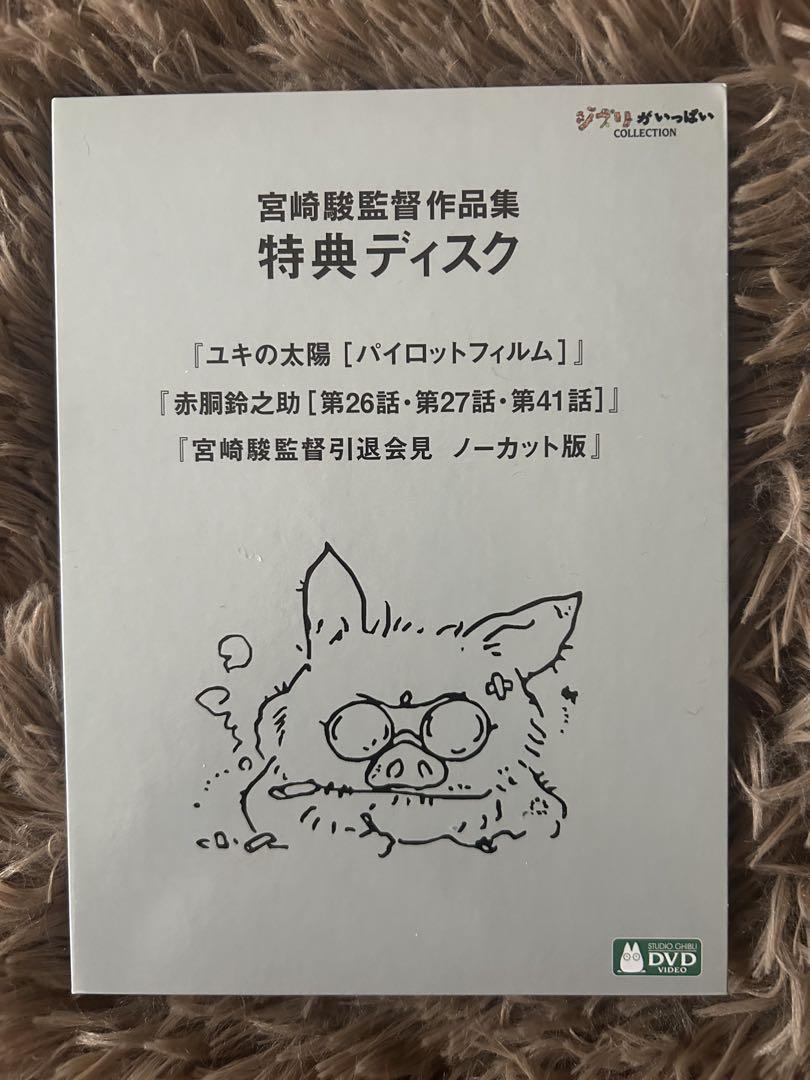 ジブリがいっぱい
COLLECTION
宮崎駿監督作品集
特典ディスク
『ユキの太陽 [パイロットフィルム]』
『赤胴鈴之助[第26話・第27話・第41話]』
『宮崎駿監督引退会見 ノーカット版』
STUDIO GHIBLI
DVD
VIDEO